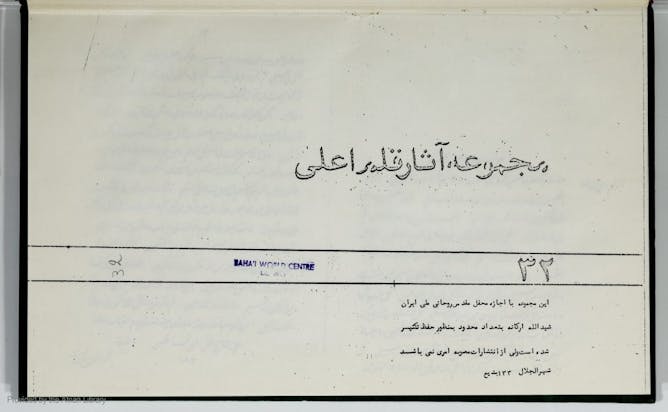 مجموعه آثار قلم اعلی
۳۲
32
BAHA'I WORLD CENTRE
LIBRARY
این مجموعه با اجازه محفل مقدس روحانی ملی ایران
شیدالله ارکانه بتعداد محدود بمنظور حفظ تکثیر
شده است ولی از انتشارات مصوبه امری نمی باشد
شهرالجلال ۱۳۳ بدیع
Produced by the Afnan Library